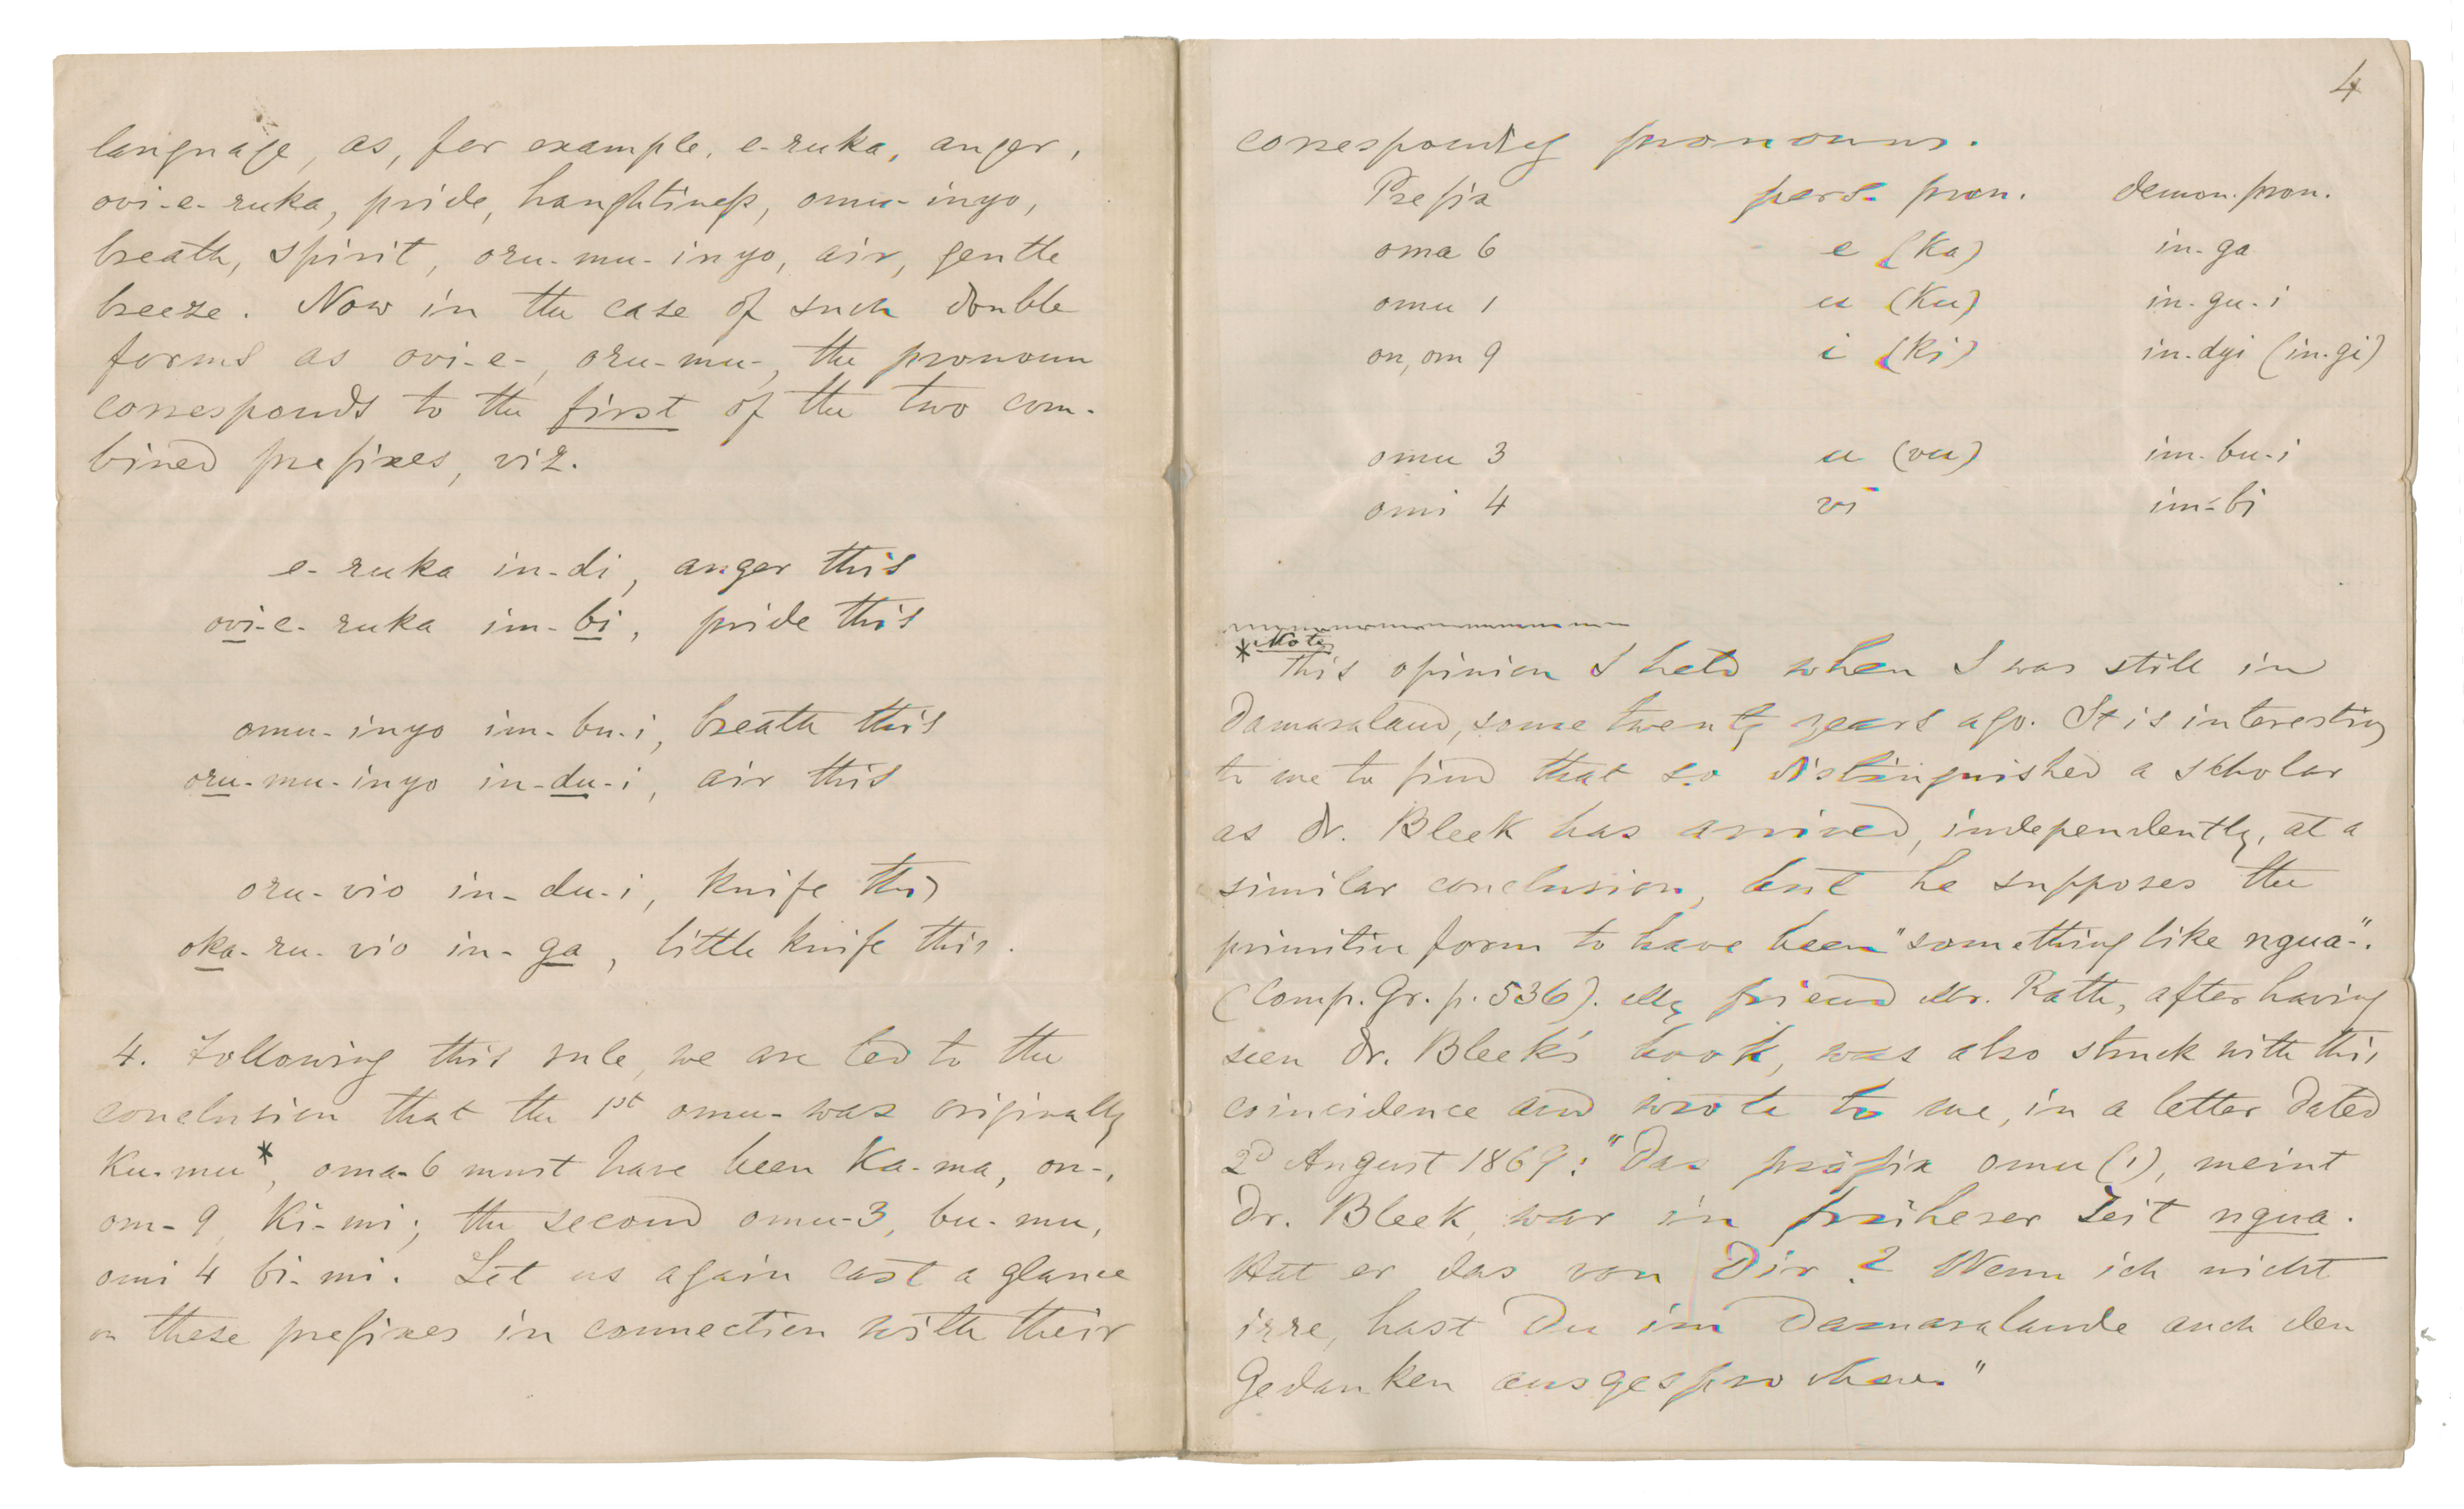 language, as, for example, e-ruka, anger,
ovi-e-ruka, pride, haughtiness, omu-inyo,
breath, spirit, oru-mu-inyo, air, gentle
breeze. Now in the case of such double
forms as ovi-e-, oru-mu-, the pronoun
corresponds to the first of the two com-
bined prefixes, viz.
e-ruka in-di, anger this
ovi-e-ruka im-bi, pride this
omu-inyo im-bu-i, breath this
oru-mu-inyo in-du-i, air this
oru-vio in-du-i, knife this
oka-ru-vio in-ga, little knife this.
4. Following this rule, we are led to the
conclusion that the 1st omu- was originally
Ku-mu*, oma-6 must have been Ka-ma, on-,
om-9, Ki-mi; the second omu-3, bu-mu,
omi 4 bi-mi. Let us again cast a glance
on these prefixes in connection with their
4
corresponding pronouns.
Prefix pers. pron. demon. pron.
oma 6 e (Ka) in-ga
omu 1 u (Ku) in-gu-i
on, om 9 i (Ki) in-dyi (in-gi)
omu 3 u (vu) im-bu-i
omi 4 vi im-bi
*Note
This opinion I held when I was still in
Damaraland, some twenty years ago. It is interesting
to me to find that so distinguished a scholar
as Dr. Bleek has arrived, independently, at a
similar conclusion, but he supposes the
primitive form to have been "something like ngua-".
(Comp. Gr. p. 536). My friend Mr. Rath, after having
seen Dr. Bleek's book, was also struck with this
coincidence and wrote to me, in a letter dated
2d August 1869: "Das präfix omu (1), meint
Dr. Bleek, war in früherer Zeit ngua.
Hat er das von Dir? Wenn ich nicht
irre, hast Du im Damaralande auch den
Gedanken ausgesprochen."